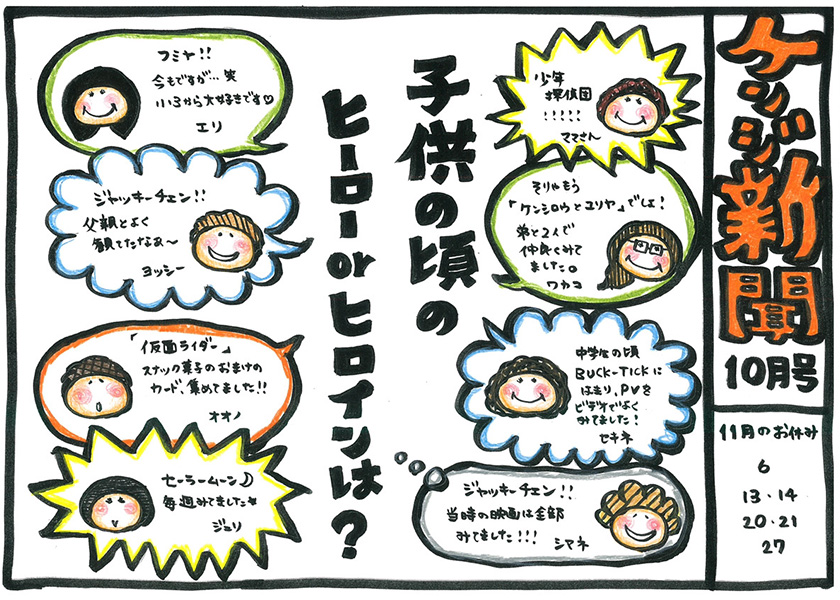 ケンジ新聞
10月号
11月のお休み
6
13・14
20・21
27
子供の頃の
ヒーローorヒロインは?
少年
探偵団
!!!!!
ママさん
そりゃもう
「ケンシロウとユリヤ」でしょ!
弟と2人で
仲良くみて
ました。
ワカコ
中学生の頃
BUCK-TICKに
はまり、PVを
ビデオでよく
みてました!
セキネ
ジャッキーチェン!!
当時の映画は全部
みてました!!!
シマネ
フミヤ!!
今もですが…笑
小3から大好きです♡
エリ
ジャッキーチェン!!
父親とよく
観てたなぁ〜
ヨッシー
「仮面ライダー」
スナック菓子のおまけの
カード集めてました!!
オオノ
セーラームーン♪
毎週みてました☆
ジュリ